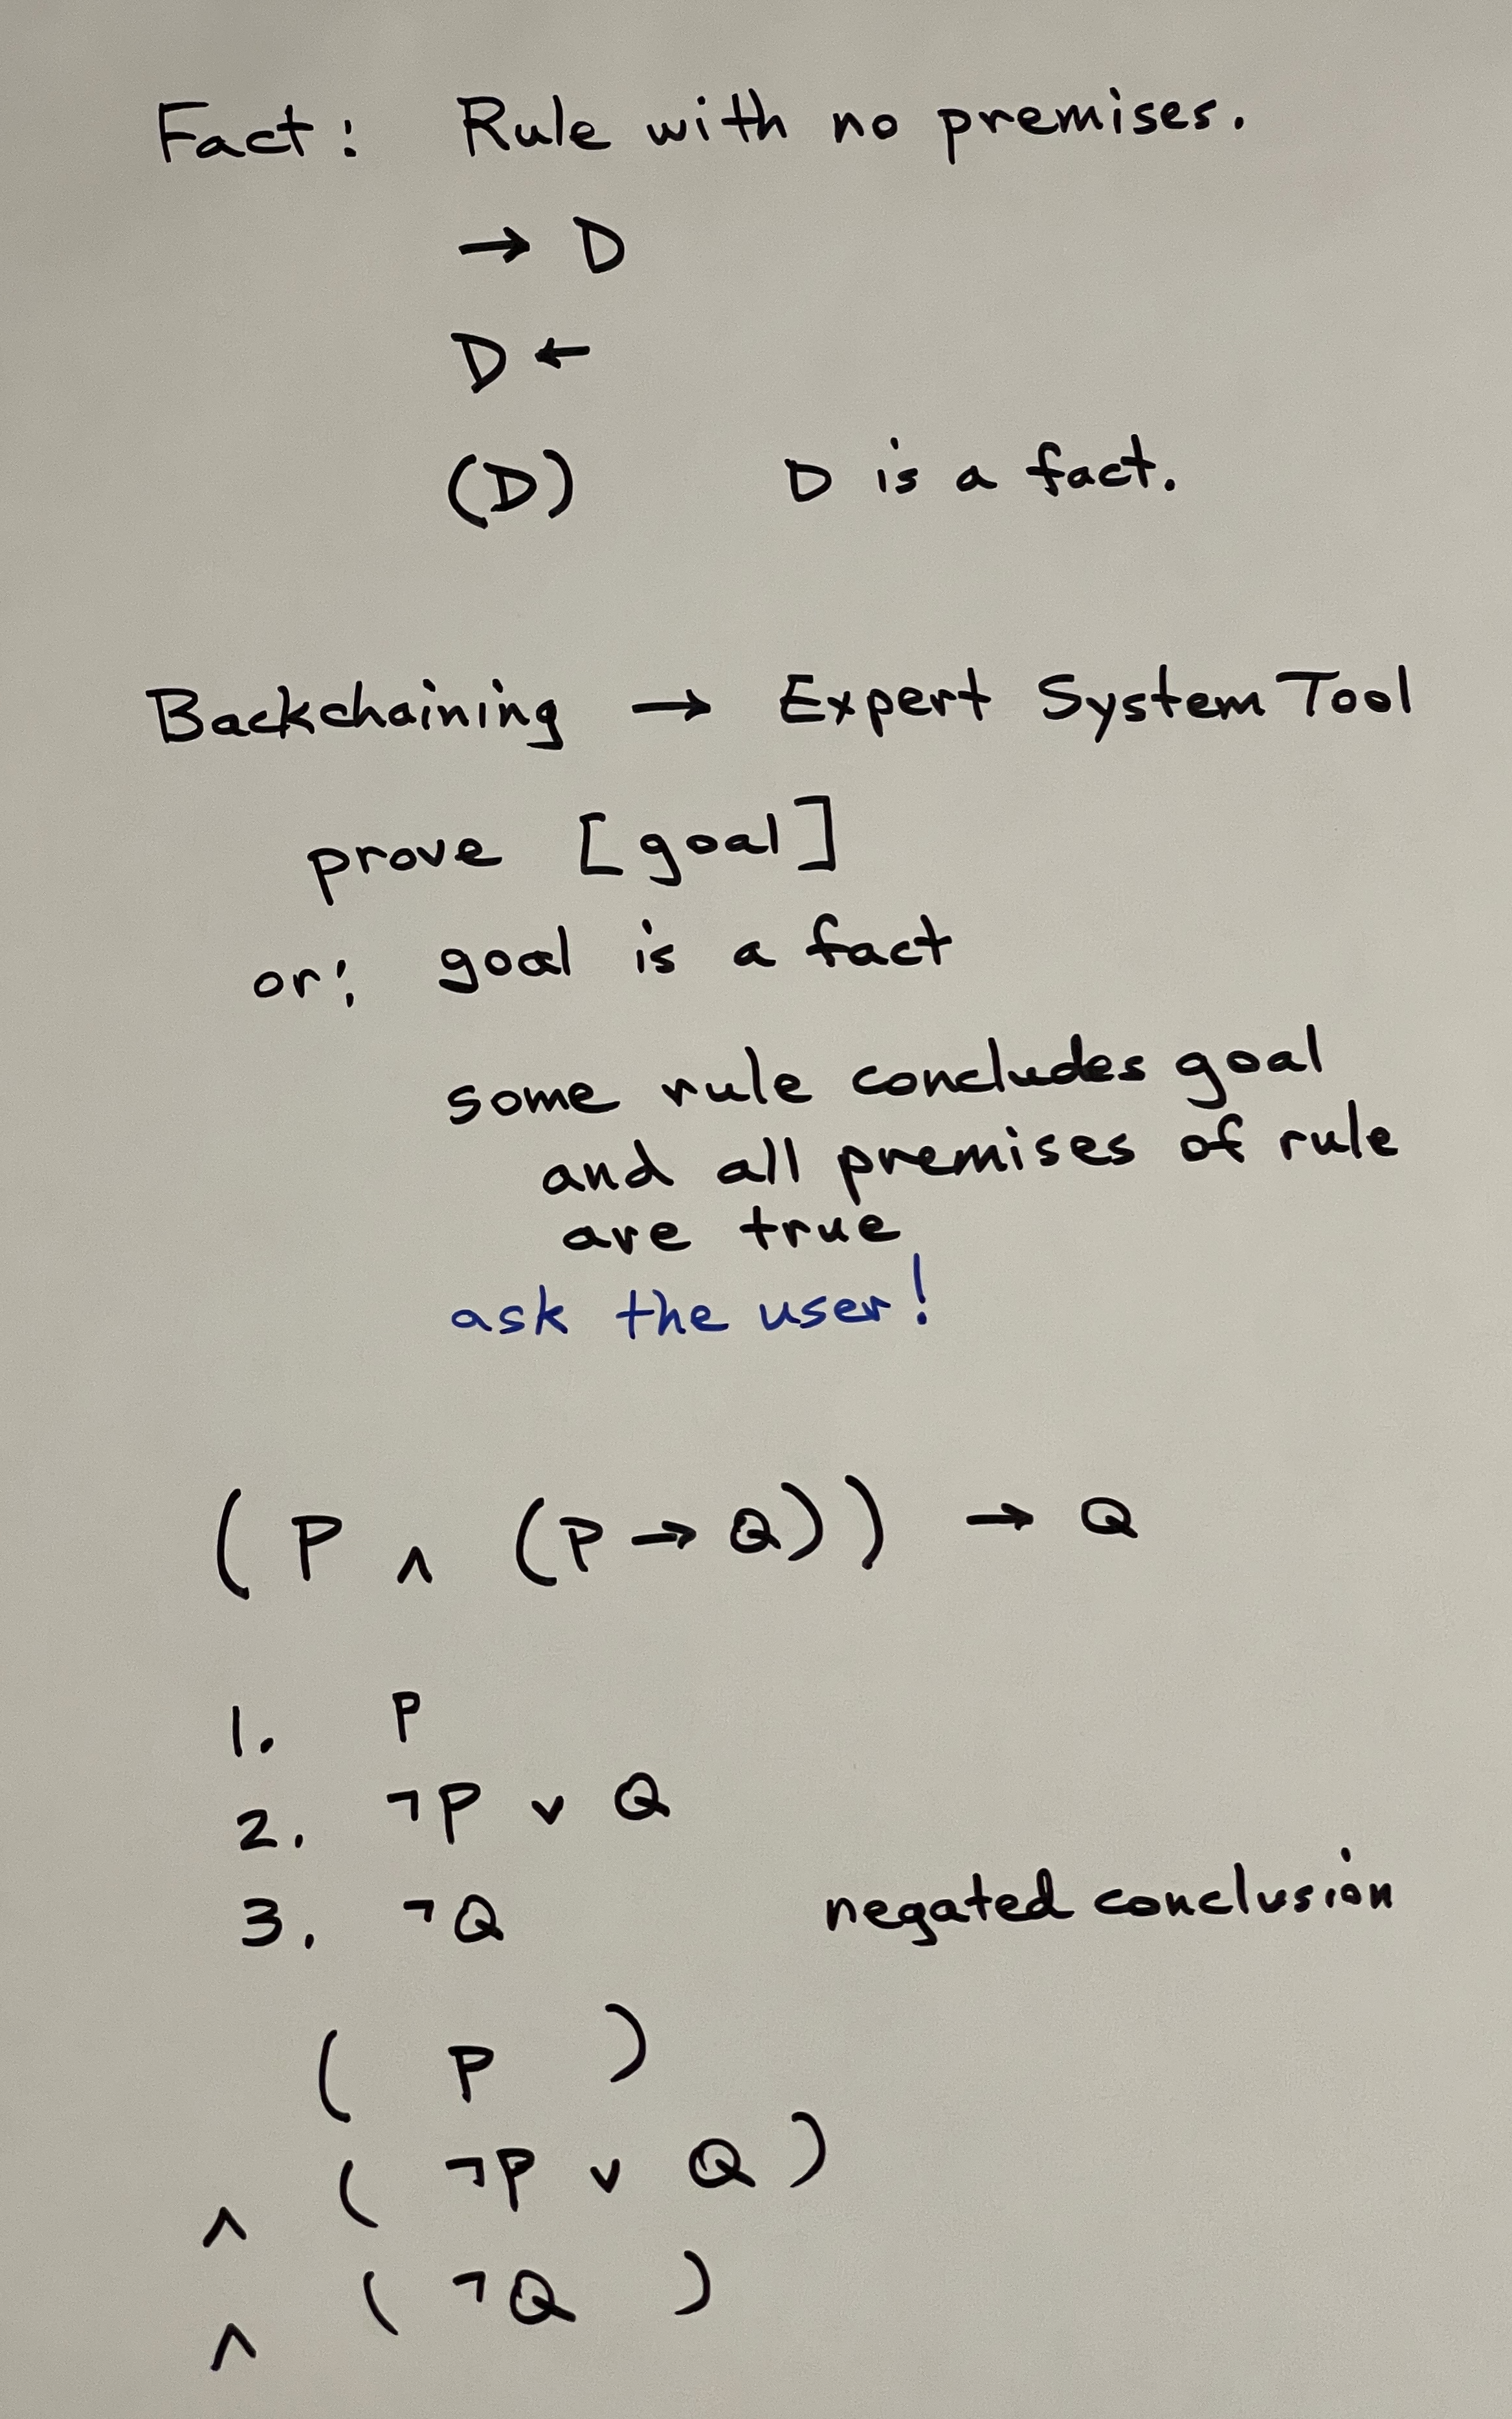 Fact: Rule with no premises.
→ D
D ←
(D) D is a fact.
Backchaining → Expert System Tool
prove [goal]
or: goal is a fact
some rule concludes goal
and all premises of rule
are true
ask the user!
(P ∧ (P → Q)) → Q
1. P
2. ¬P ∨ Q
3. ¬Q negated conclusion
( P )
∧ ( ¬P ∨ Q )
∧ ( ¬Q )